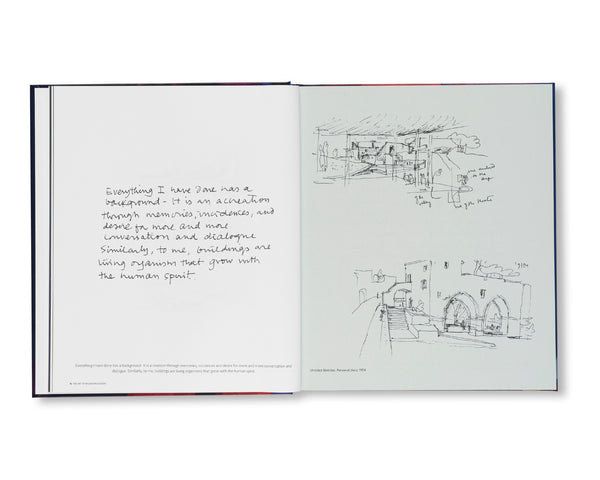 Everything I have done has a
background - it is an accreation
through memories, incidences, and
desire for more and more
conversation and dialogue
Similarly, to me, buildings are
living organisms that grow with
the human spirit.
Everything I have done has a background. It is a creation through memories, incidences and desire for more and more conversation and
dialogue. Similarly, to me, buildings are living organisms that grow with the human spirit.
the
Untitled Sketches, Personal diary, 1994